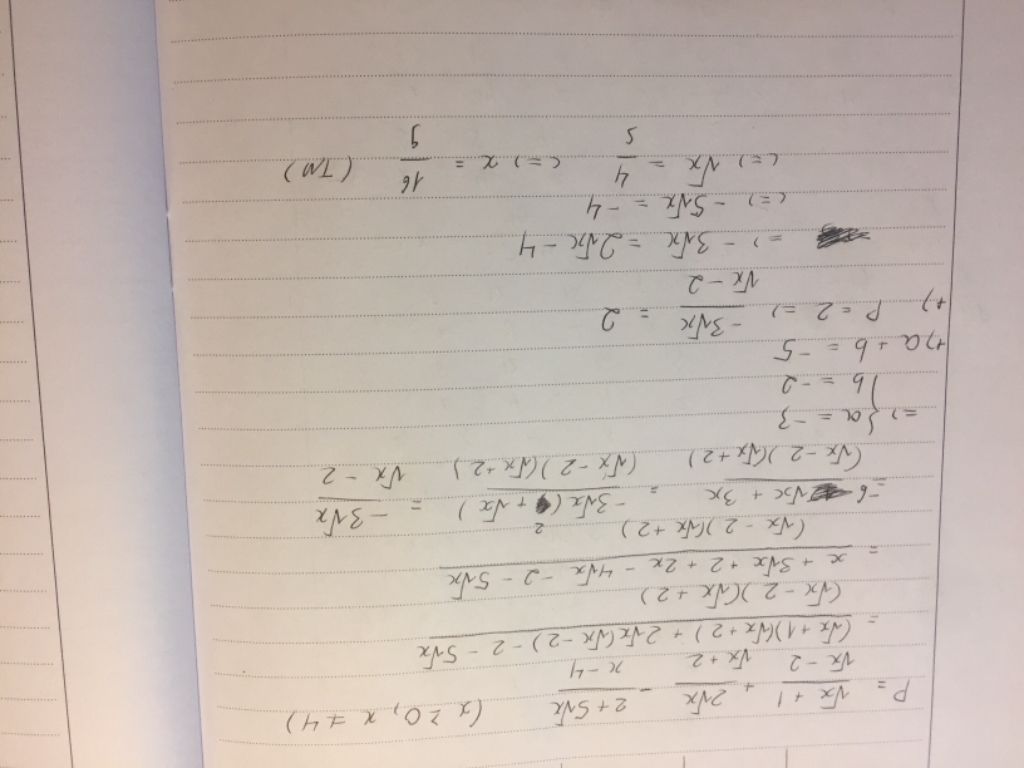 P = \frac{√x + 1}{√x - 2} + \frac{2√x}{√x + 2} - \frac{2 + 5√x}{x - 4} (x ≥ 0, x ≠ 4)
= \frac{(√x + 1)(√x + 2) + 2√x(√x - 2) - 2 - 5√x}{(√x - 2)(√x + 2)}
= \frac{x + 3√x + 2 + 2x - 4√x - 2 - 5√x}{(√x - 2)(√x + 2)}
= \frac{-6√x + 3x}{(√x - 2)(√x + 2)} = \frac{-3√x(2 + √x)}{(√x - 2)(√x + 2)} = \frac{-3√x}{√x - 2}
=> { a = -3
b = -2
+) a + b = -5
+) P = 2 => \frac{-3√x}{√x - 2} = 2
=> -3√x = 2√x - 4
<=> -5√x = -4
<=> √x = \frac{4}{5} <=> x = \frac{16}{9} (TN)